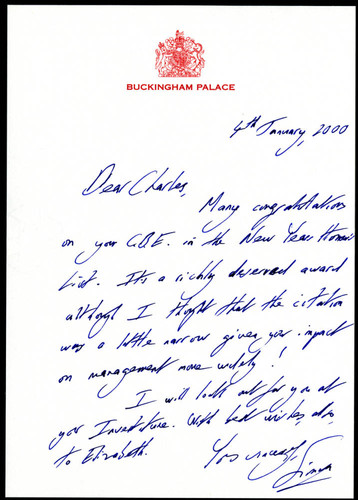 BUCKINGHAM PALACE
4th January, 2000
Dear Charles,
Many congratulations
on your C.B.E. in the New Year Honours
List. It's a richly deserved award
although I thought that the citation
was a little narrow given your impact
on management more widely!
I will look out for you at
your Investiture. With best wishes, also,
to Elizabeth.
Yours sincerely,
Simon